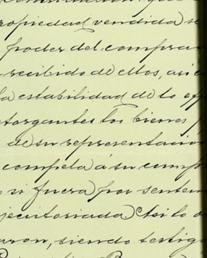 propiedad vendida se
poder del compra
recibido de ellos, así c
la estabilidad de lo
otorgantes los bienes y
de su representación
compela á su comp
ni fuera por senten
jecutoriada Así lo o
ron, siendo testigo